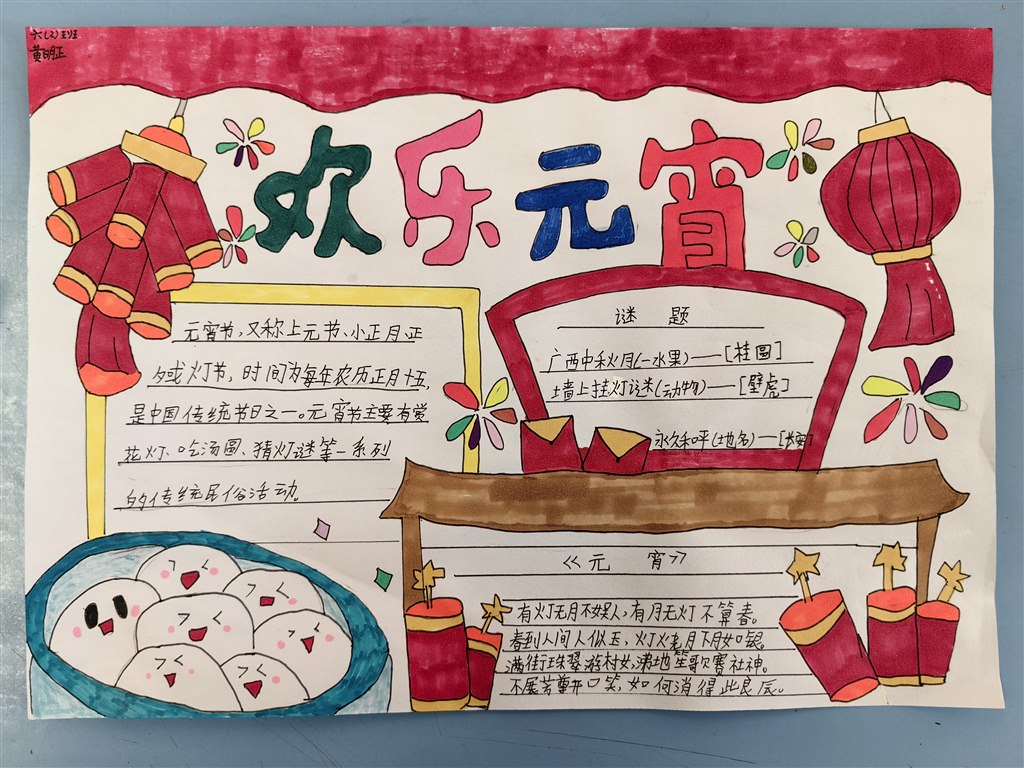 六(2)班
黄明正
欢乐元宵
元宵节,又称上元节、小正月、正
夕或灯节,时间为每年农历正月十五,
是中国传统节日之一。元宵节主要有赏
花灯、吃汤圆、猜灯谜等一系列
的传统民俗活动。
谜 题
广西中秋月(一水果)——[桂圆]
墙上挂灯谜(动物)——[壁虎]
永久和平(地名)——[长安]
《元 宵》
有灯无月不娱人,有月无灯不算春。
春到人间人似玉,灯火烧月下月如银。
满街珠翠游村女,沸地笙歌赛社神。
不展芳尊开口笑,如何消得此良辰。